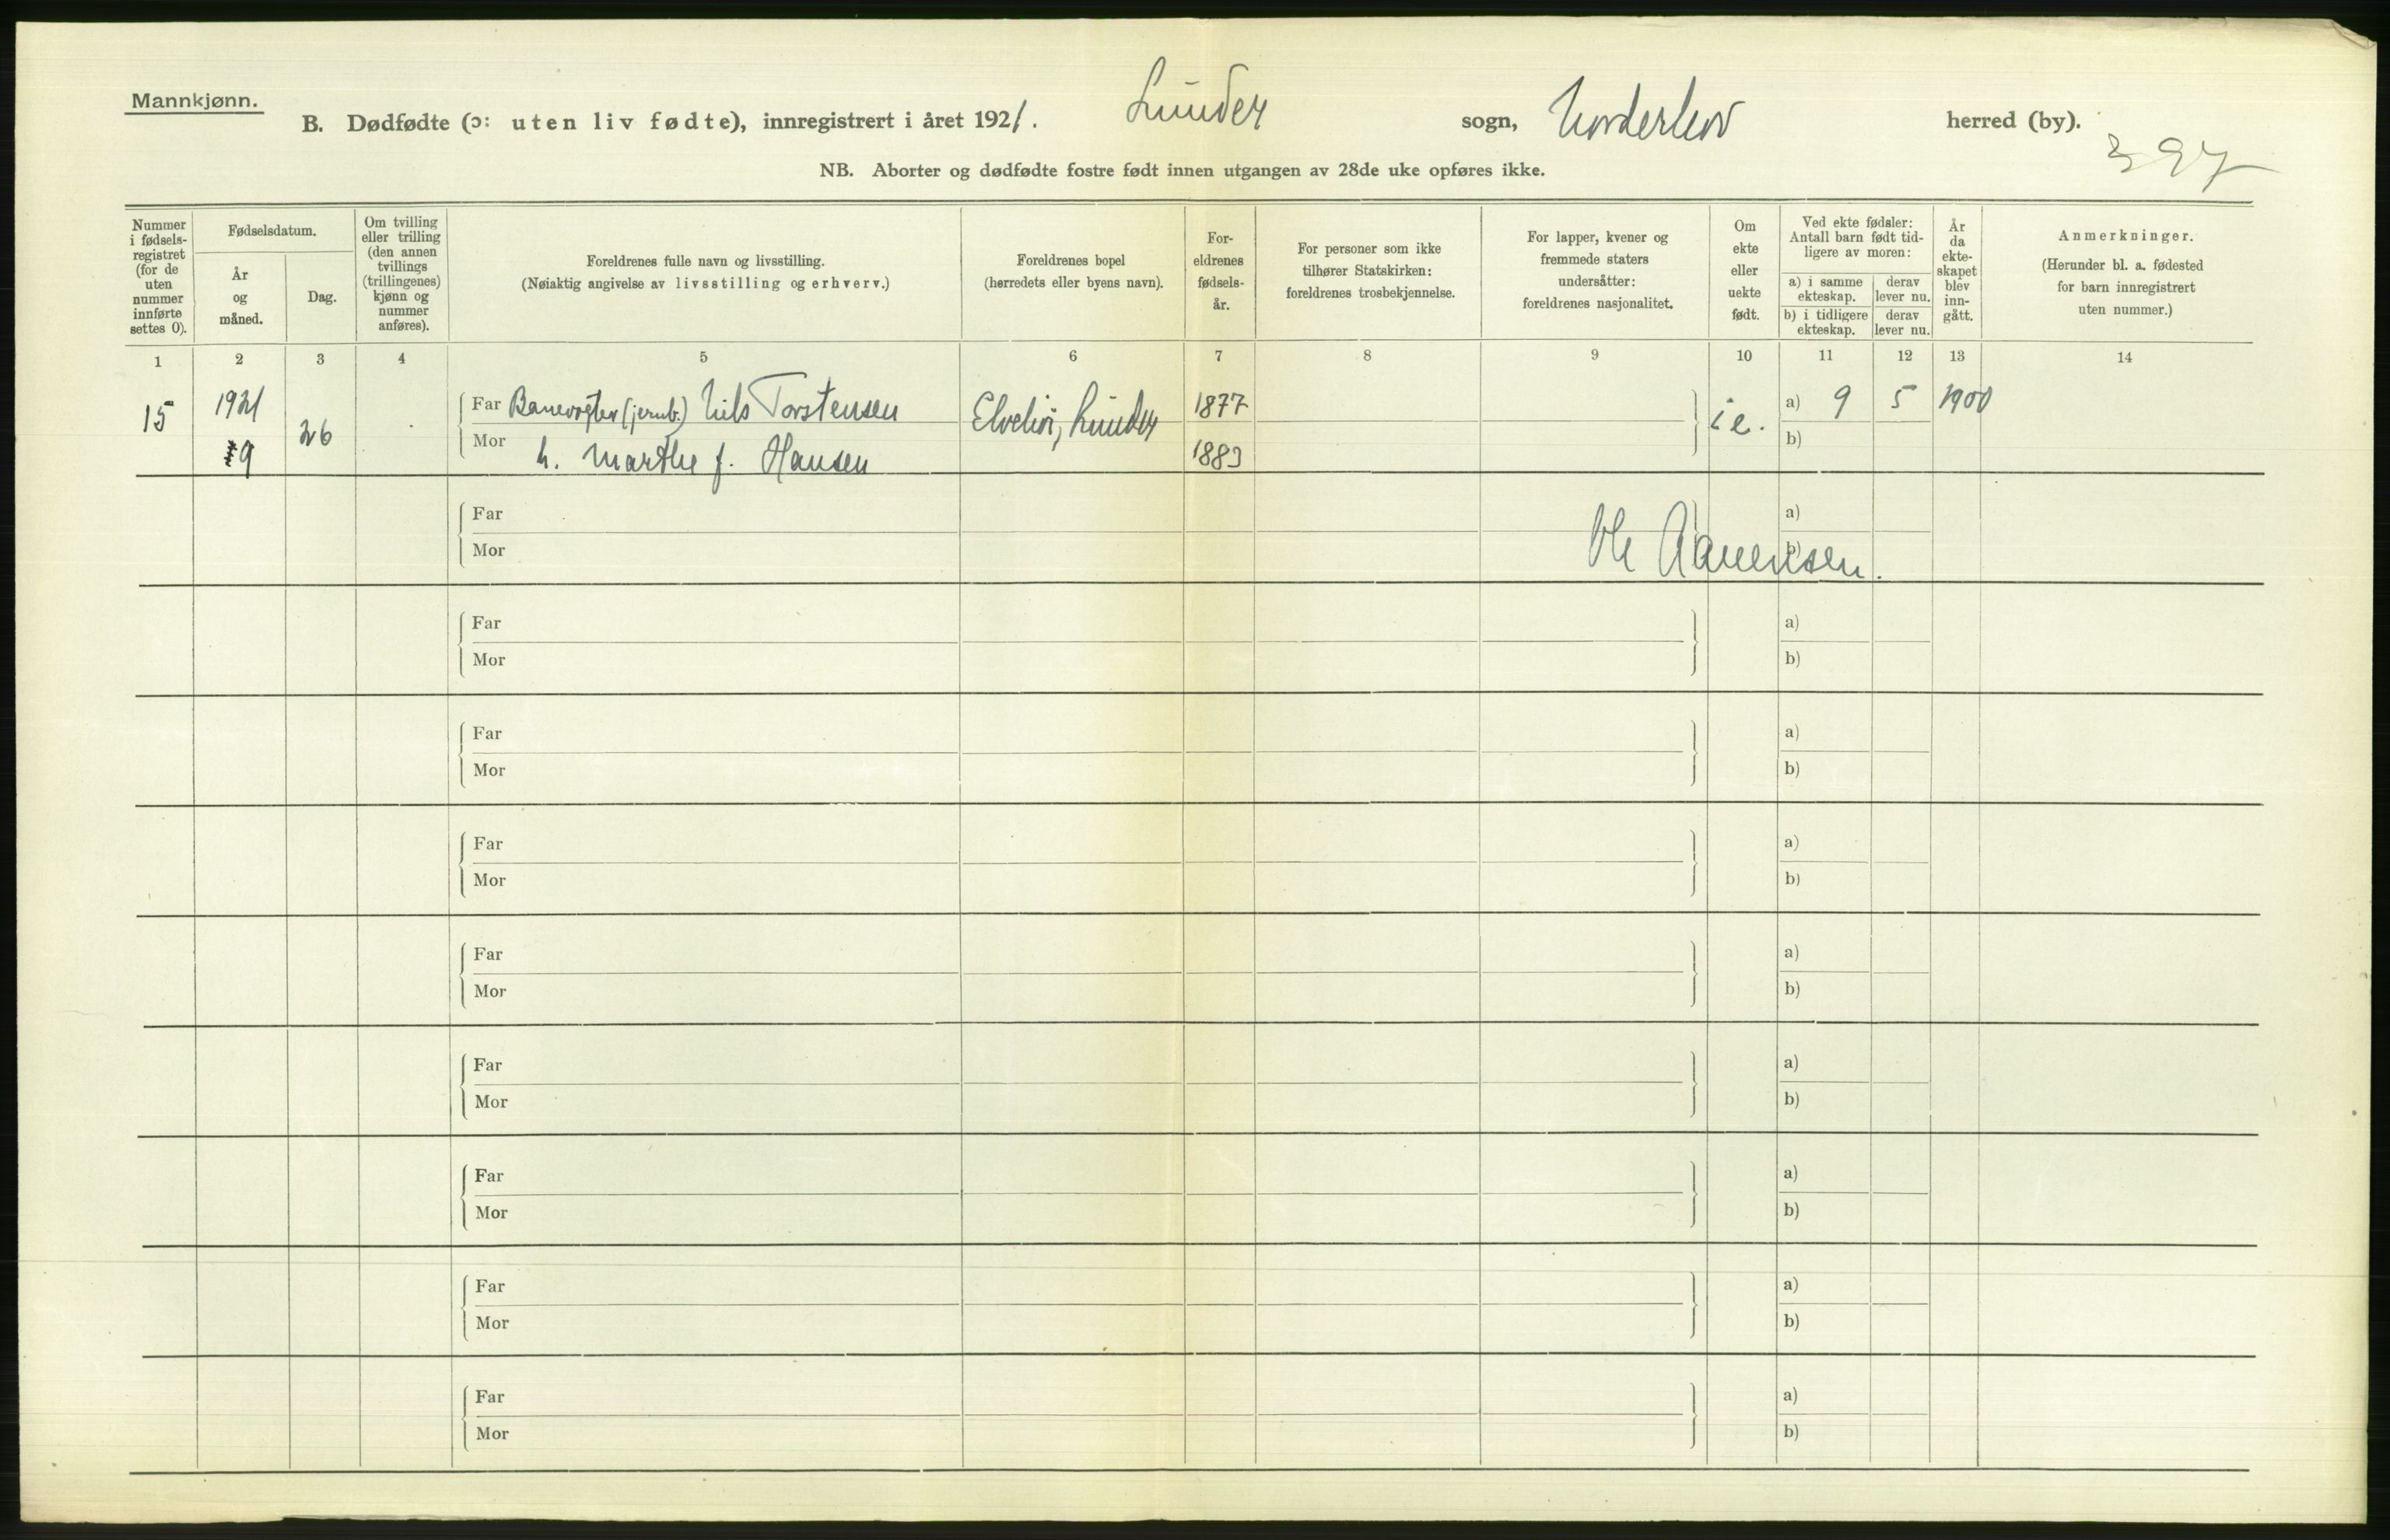 Mannkjønn.
B. Dødfødte (ɔ: uten liv fødte), innregistrert i året 1921. Lunder sogn, Norderhov herred (by).
397
NB. Aborter og dødfødte fostre født innen utgangen av 28de uke opføres ikke.
Nummer i fødsels-registret (for de uten nummer innførte settes 0).
Fødselsdatum.
År og måned.
Dag.
Om tvilling eller trilling (den annen tvillings (trillingenes) kjønn og nummer anføres).
Foreldrenes fulle navn og livsstilling.
(Nøiaktig angivelse av livsstilling og erhverv.)
Foreldrenes bopel
(herredets eller byens navn).
For-eldrenes fødsels-år.
For personer som ikke tilhører Statskirken: foreldrenes trosbekjennelse.
For lapper, kvener og fremmede staters undersåtter: foreldrenes nasjonalitet.
Om ekte eller uekte født.
Ved ekte fødsler: Antall barn født tid-ligere av moren:
a) i samme ekteskap. derav lever nu.
b) i tidligere ekteskap. derav lever nu.
År da ekte-skapet blev inn-gått.
Anmerkninger.
(Herunder bl. a. fødested for barn innregistrert uten nummer.)
1 2 3 4 5 6 7 8 9 10 11 12 13 14
15 1921 9 26 Far Banevogter (jernb.) Nils Torstensen Elvelivi, Lunder 1877 i e. a) 9 5 1900
Mor h. Marthe f. Hansen 1883 b)
Far a)
Mor b)
Ole Aanensen.
Far a)
Mor b)
Far a)
Mor b)
Far a)
Mor b)
Far a)
Mor b)
Far a)
Mor b)
Far a)
Mor b)
Far a)
Mor b)
Far a)
Mor b)